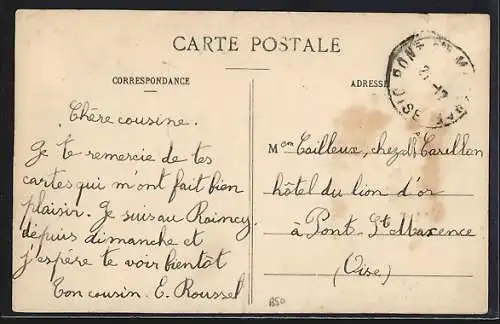 CARTE POSTALE
CORRESPONDANCE
Chère cousine.
Je te remercie de tes
cartes qui m'ont fait bien
plaisir. Je suis au Raincy
depuis dimanche et
j'espère te voir bientôt
Ton cousin. E. Roussel
ADRESSE
Mem Tailleux, chez Mr Carillon
hôtel du lion d'or
à Pont Ste Maxence
(Oise)
B50